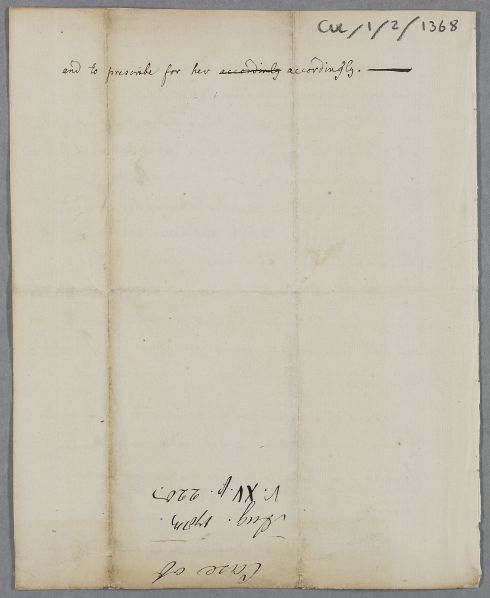 CUL/1/2/1368
and to prescribe for her accordinly accordingly.
Case of
Aug. 1783.
V. XV. p. 220.